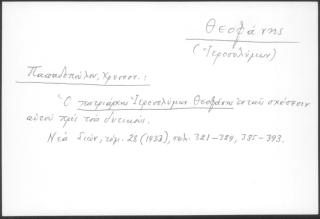 Θεοφάνης
(Ἱεροσολύμων)
Παπαδοπούλου, Χρυσοστ.:
Ὁ πατριάρχης Ἱεροσολύμων Θεοφάνης ἐν ταῖς σχέσεσιν
αὐτοῦ πρὸς τοὺς δυτικούς.
Νέα Σιών, τόμ. 28 (1933), σελ. 321-329, 385-393.